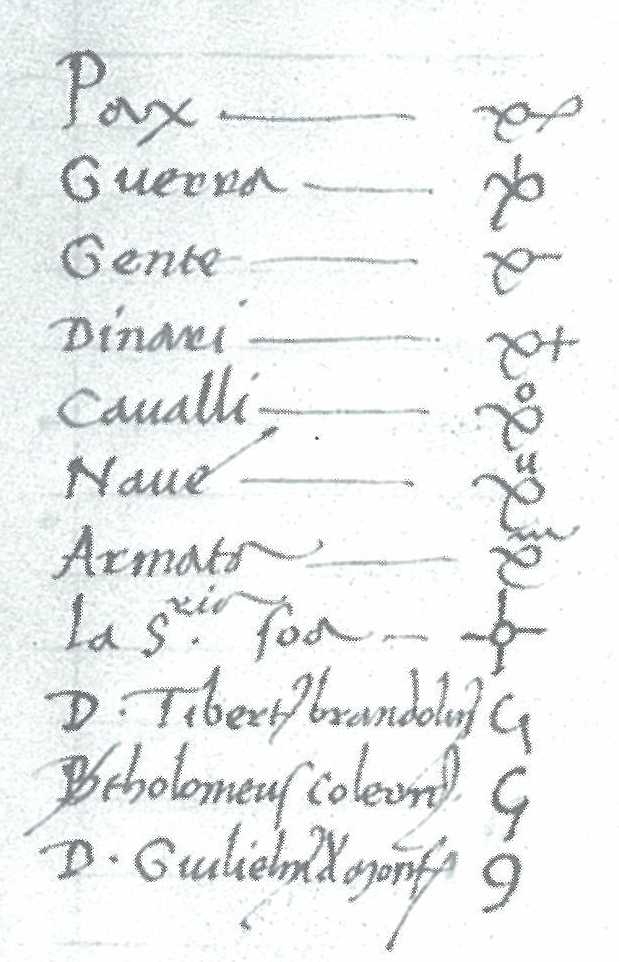 Pax
Guerra
Gente
Dinari
Caualli
Naue
Armata
La S.ria soa
D. Tiberty brandolin
Bartholomeus coleon
D. Guilielm